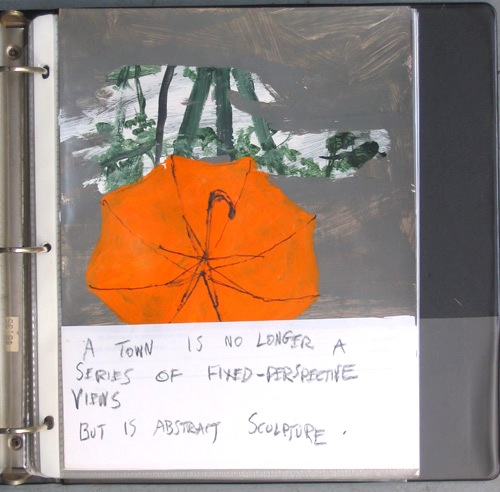 A TOWN IS NO LONGER A
SERIES OF FIXED-PERSPECTIVE
VIEWS
BUT IS ABSTRACT SCULPTURE.